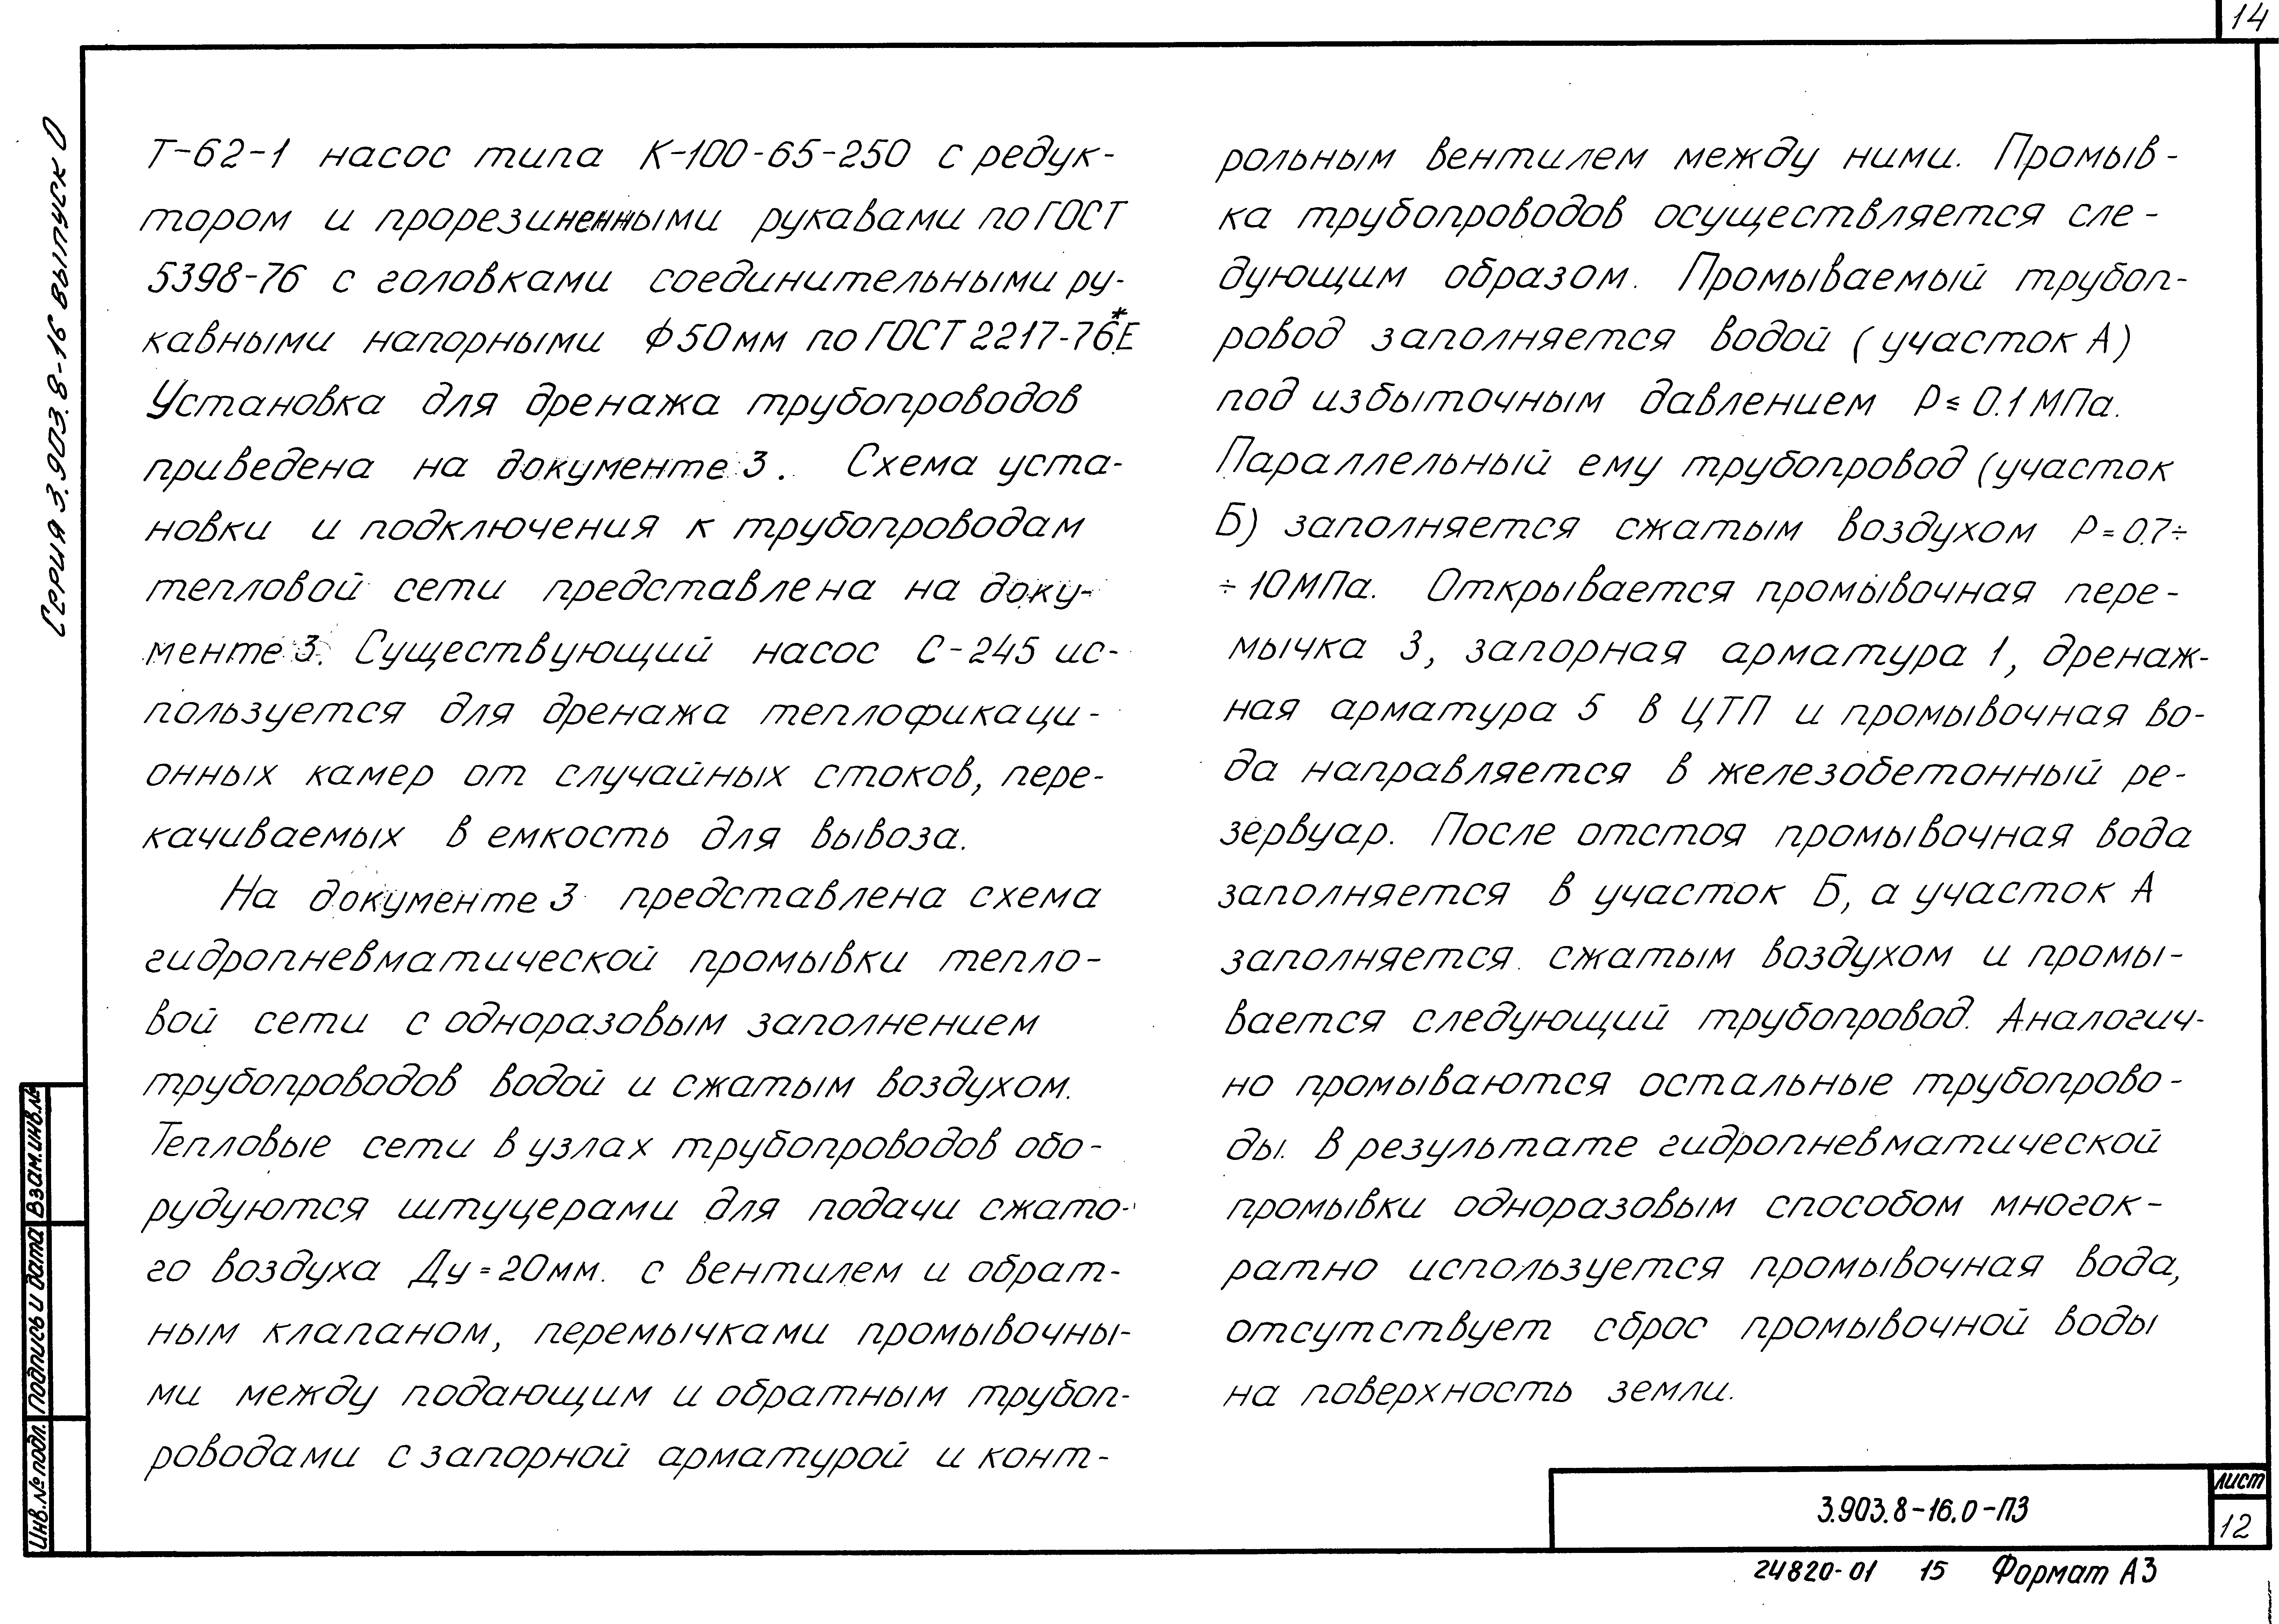 14
Серия 3.903.8-16 выпуск 0
Т-62-1 насос типа К-100-65-250 с редук-
тором и прорезиненными рукавами по ГОСТ
5398-76 с головками соединительными ру-
кавными напорными ф50мм по ГОСТ 2217-76*Е
Установка для дренажа трубопроводов
приведена на документе 3. Схема уста-
новки и подключения к трубопроводам
тепловой сети представлена на доку-
менте 3. Существующий насос С-245 ис-
пользуется для дренажа теплофикаци-
онных камер от случайных стоков, пере-
качиваемых в емкость для вывоза.
На документе 3 представлена схема
гидропневматической промывки тепло-
вой сети с одноразовым заполнением
трубопроводов водой и сжатым воздухом.
Тепловые сети в узлах трубопроводов обо-
рудуются штуцерами для подачи сжато-
го воздуха Ду=20мм. с вентилем и обрат-
ным клапаном, перемычками промывочны-
ми между подающим и обратным трубоп-
роводами с запорной арматурой и конт-
рольным вентилем между ними. Промыв-
ка трубопроводов осуществляется сле-
дующим образом. Промываемый трубоп-
ровод заполняется водой (участок А)
под избыточным давлением Р≤0.1МПа.
Параллельный ему трубопровод (участок
Б) заполняется сжатым воздухом Р=0.7÷
÷10МПа. Открывается промывочная пере-
мычка 3, запорная арматура 1, дренаж-
ная арматура 5 в ЦТП и промывочная во-
да направляется в железобетонный ре-
зервуар. После отстоя промывочная вода
заполняется в участок Б, а участок А
заполняется сжатым воздухом и промы-
вается следующий трубопровод. Аналогич-
но промываются остальные трубопрово-
ды. В результате гидропневматической
промывки одноразовым способом многок-
ратно используется промывочная вода,
отсутствует сброс промывочной воды
на поверхность земли.
Взам.инв.№
Подпись и дата
Инв.№ подл.
3.903.8-16.0-ПЗ
лист
12
24820-01 15 Формат А3